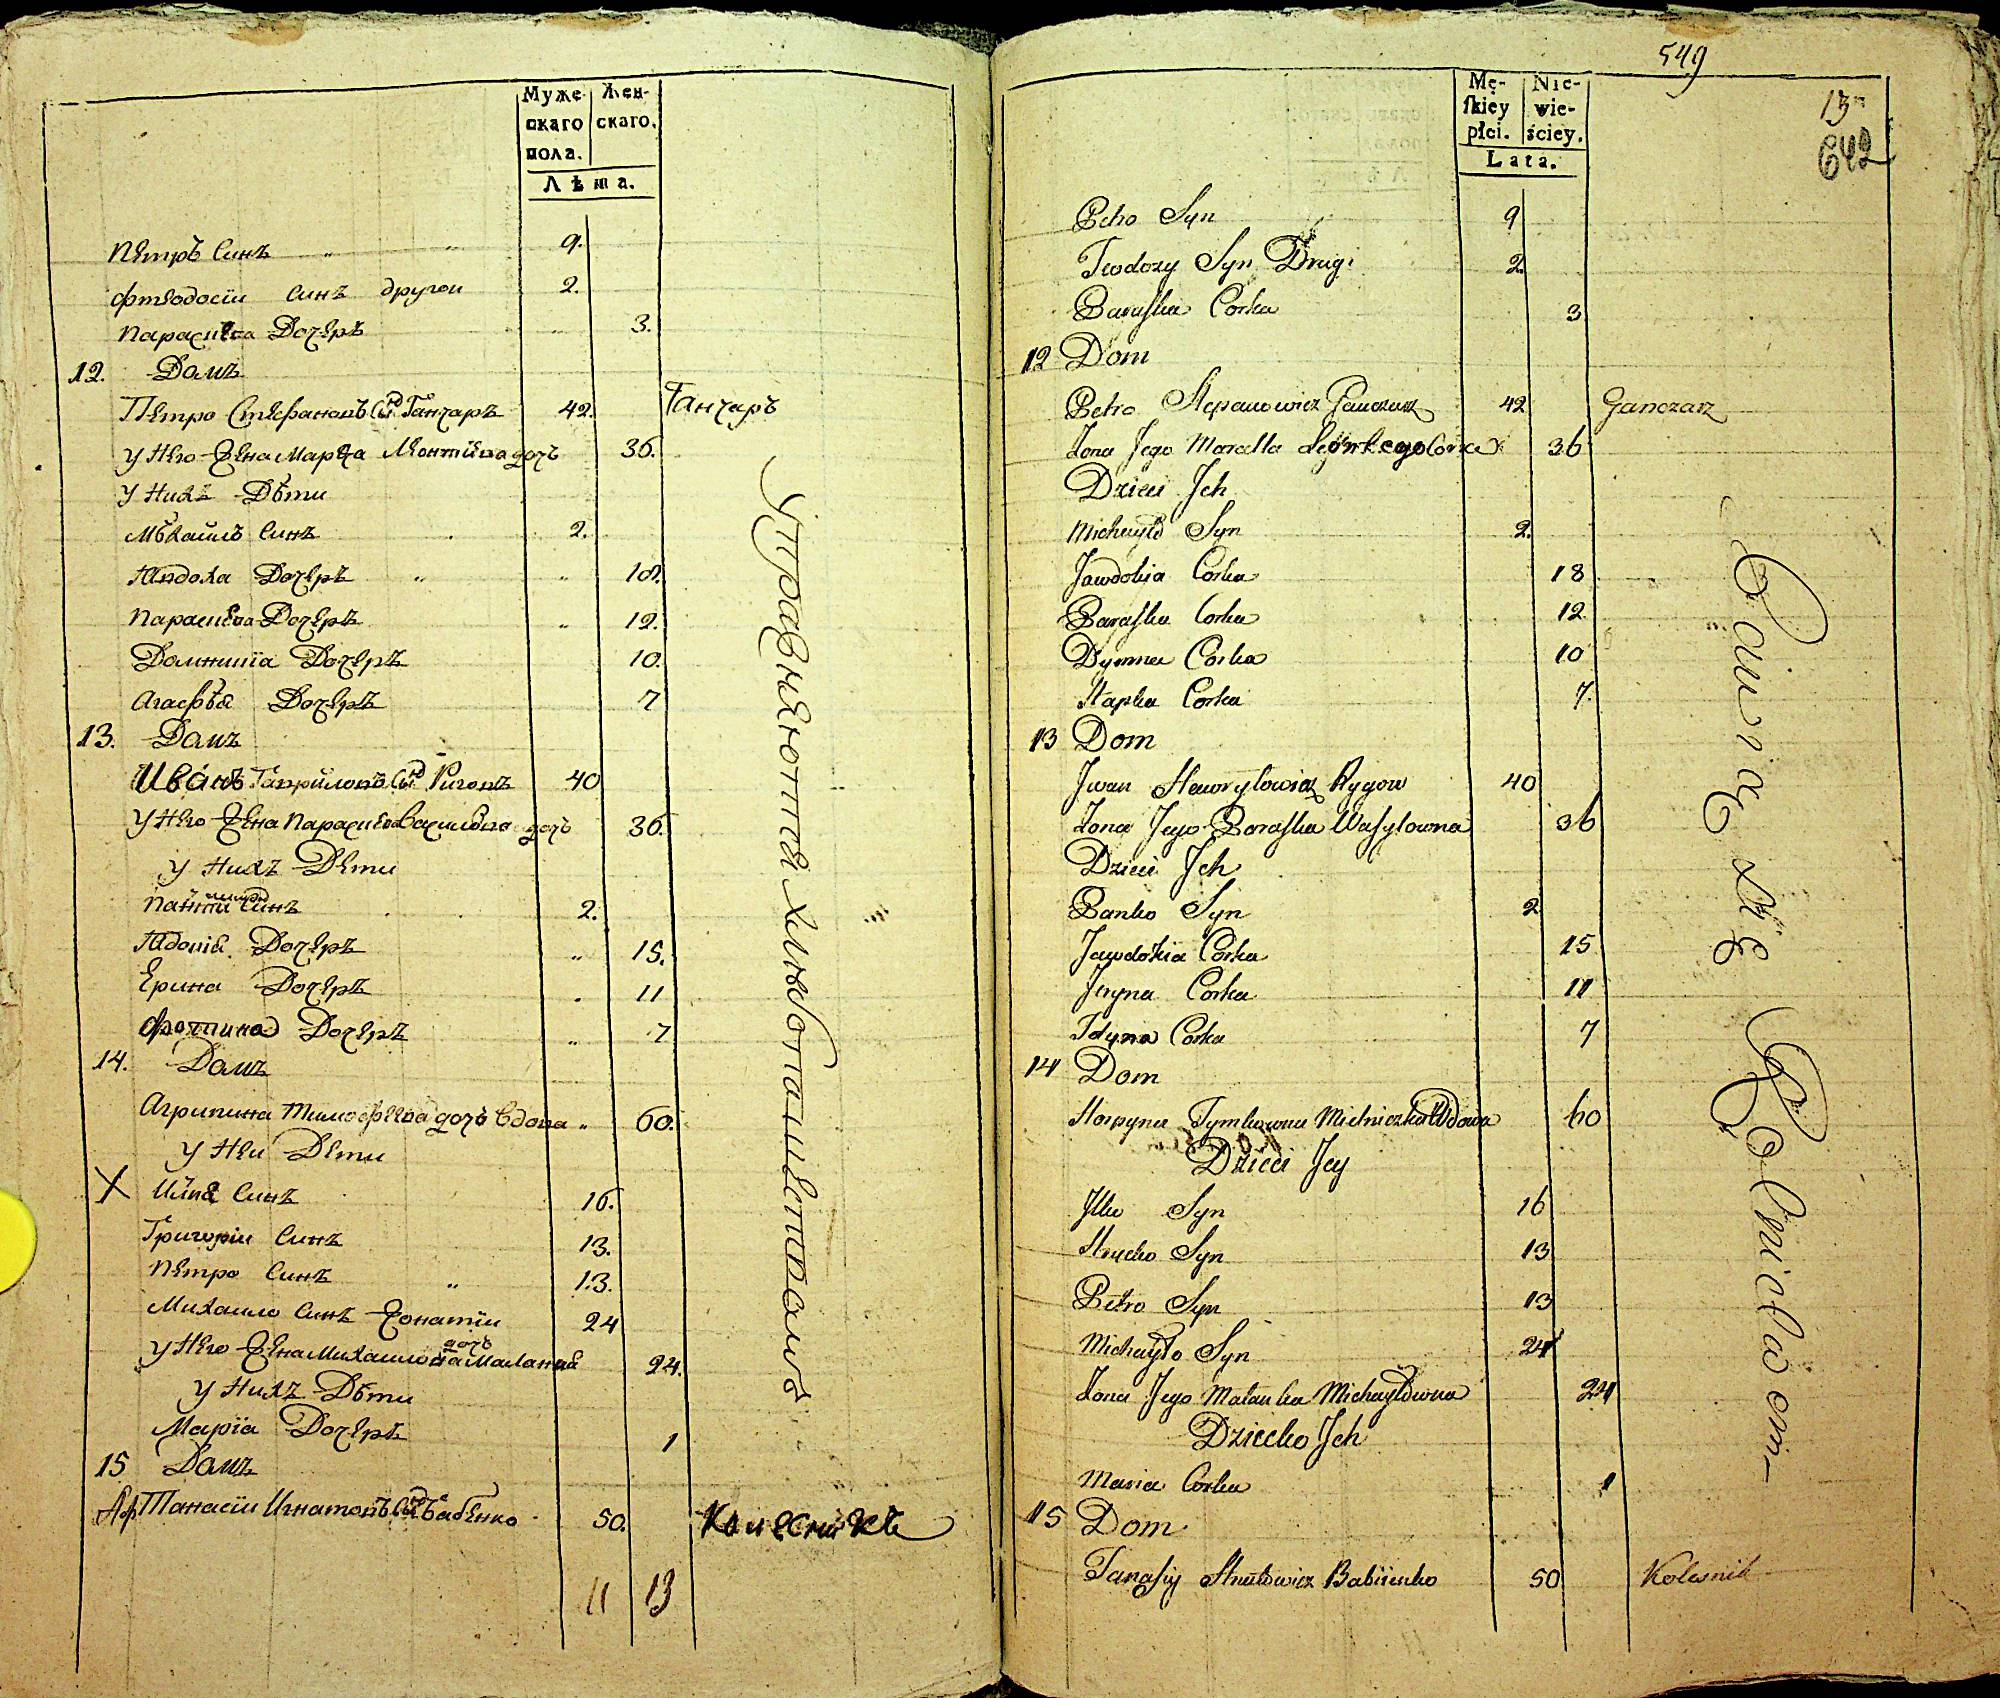 Муже-
скаго
пола.
Жен-
скаго.
Лѣта.
Петръ Синъ 9.
Фтеодосіи синъ другои 2.
Параскева Дочеръ 3.
12. Домъ
Петро Стефановъ Сынъ Ганчаръ 42. Ганчаръ
у Него Жена Марѳа Леонтіева дочь 36.
у Нихъ Дѣти
Мѣхаилъ Синъ 2.
Явдоха Дочеръ 18.
Параскева Дочеръ 12.
Домникія Дочеръ 10.
Агафѣя Дочеръ 7
13. Домъ
Иванъ Гавриловъ Сынъ Риговъ 40
у Него Жена Параскева Василѣва дочь 36.
у Нихъ Дети
Синъ 2.
Дочеръ 15.
Ерина Дочеръ 11
Фотина Дочеръ 7
14. Домъ
Агрипина Тимофеева дочь вдова 60.
у Неи Дети
X Илія Синъ 16.
Григоріи Синъ 13.
Петро Синъ 13.
Михаило Синъ Жонатіи 24
у Него Жена Михаилова дочь Маланія 24.
у Нихъ Дѣти
Марія Дочеръ 1
15 Домъ
Афтанасіи Игнатовъ Сынъ Бабенко 50. Колесникъ
11 13
Упражнеются хлѣбопашествомъ
549
13
642
Mę-
ſkiey
płci.
Nie-
wie-
ściey.
Lata.
Petro Syn 9
Teodozy Syn Drugi 2.
Paraſka Corka 3
12 Dom
Petro Stepanowicz Ganczarz 42 Ganczarz
Żona Jego Corka 36
Dzieci Jch
Michayło Syn 2.
Jawdokija Corka 18
Paraſka Corka 12
Dymna Corka 10
Hapka Corka 7.
13 Dom
Jwan Hawryłowicz Rygow 40
Żona Jego Paraſka Waſylowna 36
Dzieci Jch
Panko Syn 2
Jawdokia Corka 15
Jryna Corka 11
Corka 7
14 Dom
Horpyna Tymkowna Mielniczka Wdowa 60
Dzieci Jey
Jlko Syn 16
Hrycko Syn 13
Petro Syn 13
Michayło Syn 24
Żona Jego Małanka Michayłowna 24
Dziecko Jch
Maria Corka 1
15 Dom
Tanaſiy Hnatowicz Babiienko 50 Kolesnik
Bawią się Rolnictwem